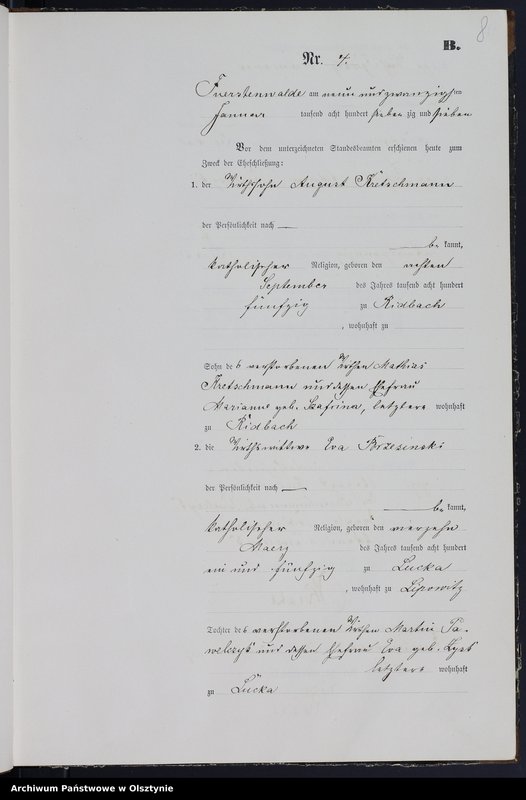 8
B.
Nr. 4.
Fuerstenwalde am neun und zwanzigsten
Januar tausend acht hundert sieben zig und sieben
Vor dem unterzeichneten Standesbeamten erschienen heute zum
Zweck der Eheschließung:
1. der Wirthssohn August Kretschmann
der Persönlichkeit nach
be kannt,
katholischer Religion, geboren den achten
September des Jahres tausend acht hundert
fünfzig zu Kidbach
, wohnhaft zu
Sohn des verstorbenen Wirthen Mathias
Kretschmann und dessen Ehefrau
Marianne geb. letztere wohnhaft
zu Kidbach
2. die Wirthswittwe Eva Brzesinski
der Persönlichkeit nach
be kannt,
katholischer Religion, geboren den vierzehn
Maerz des Jahres tausend acht hundert
ein und fünfzig zu Lucka
, wohnhaft zu Lipowitz
Tochter des verstorbenen Wirthen Martin Pa-
welczyk und dessen Ehefrau Eva geb.
letztere wohnhaft
zu Lucka
Archiwum Państwowe w Olsztynie